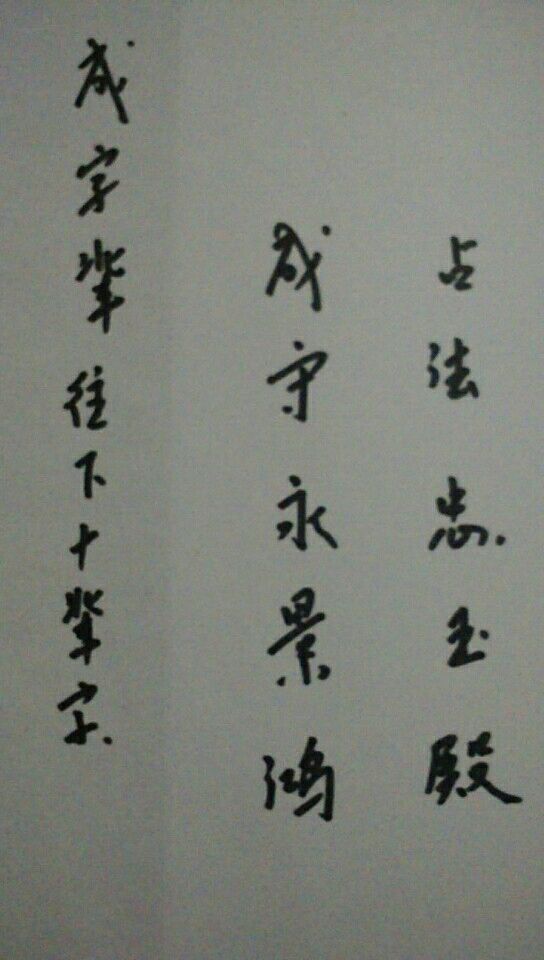 成字辈往下十辈字.
成守永景鸿
占法忠玉殿